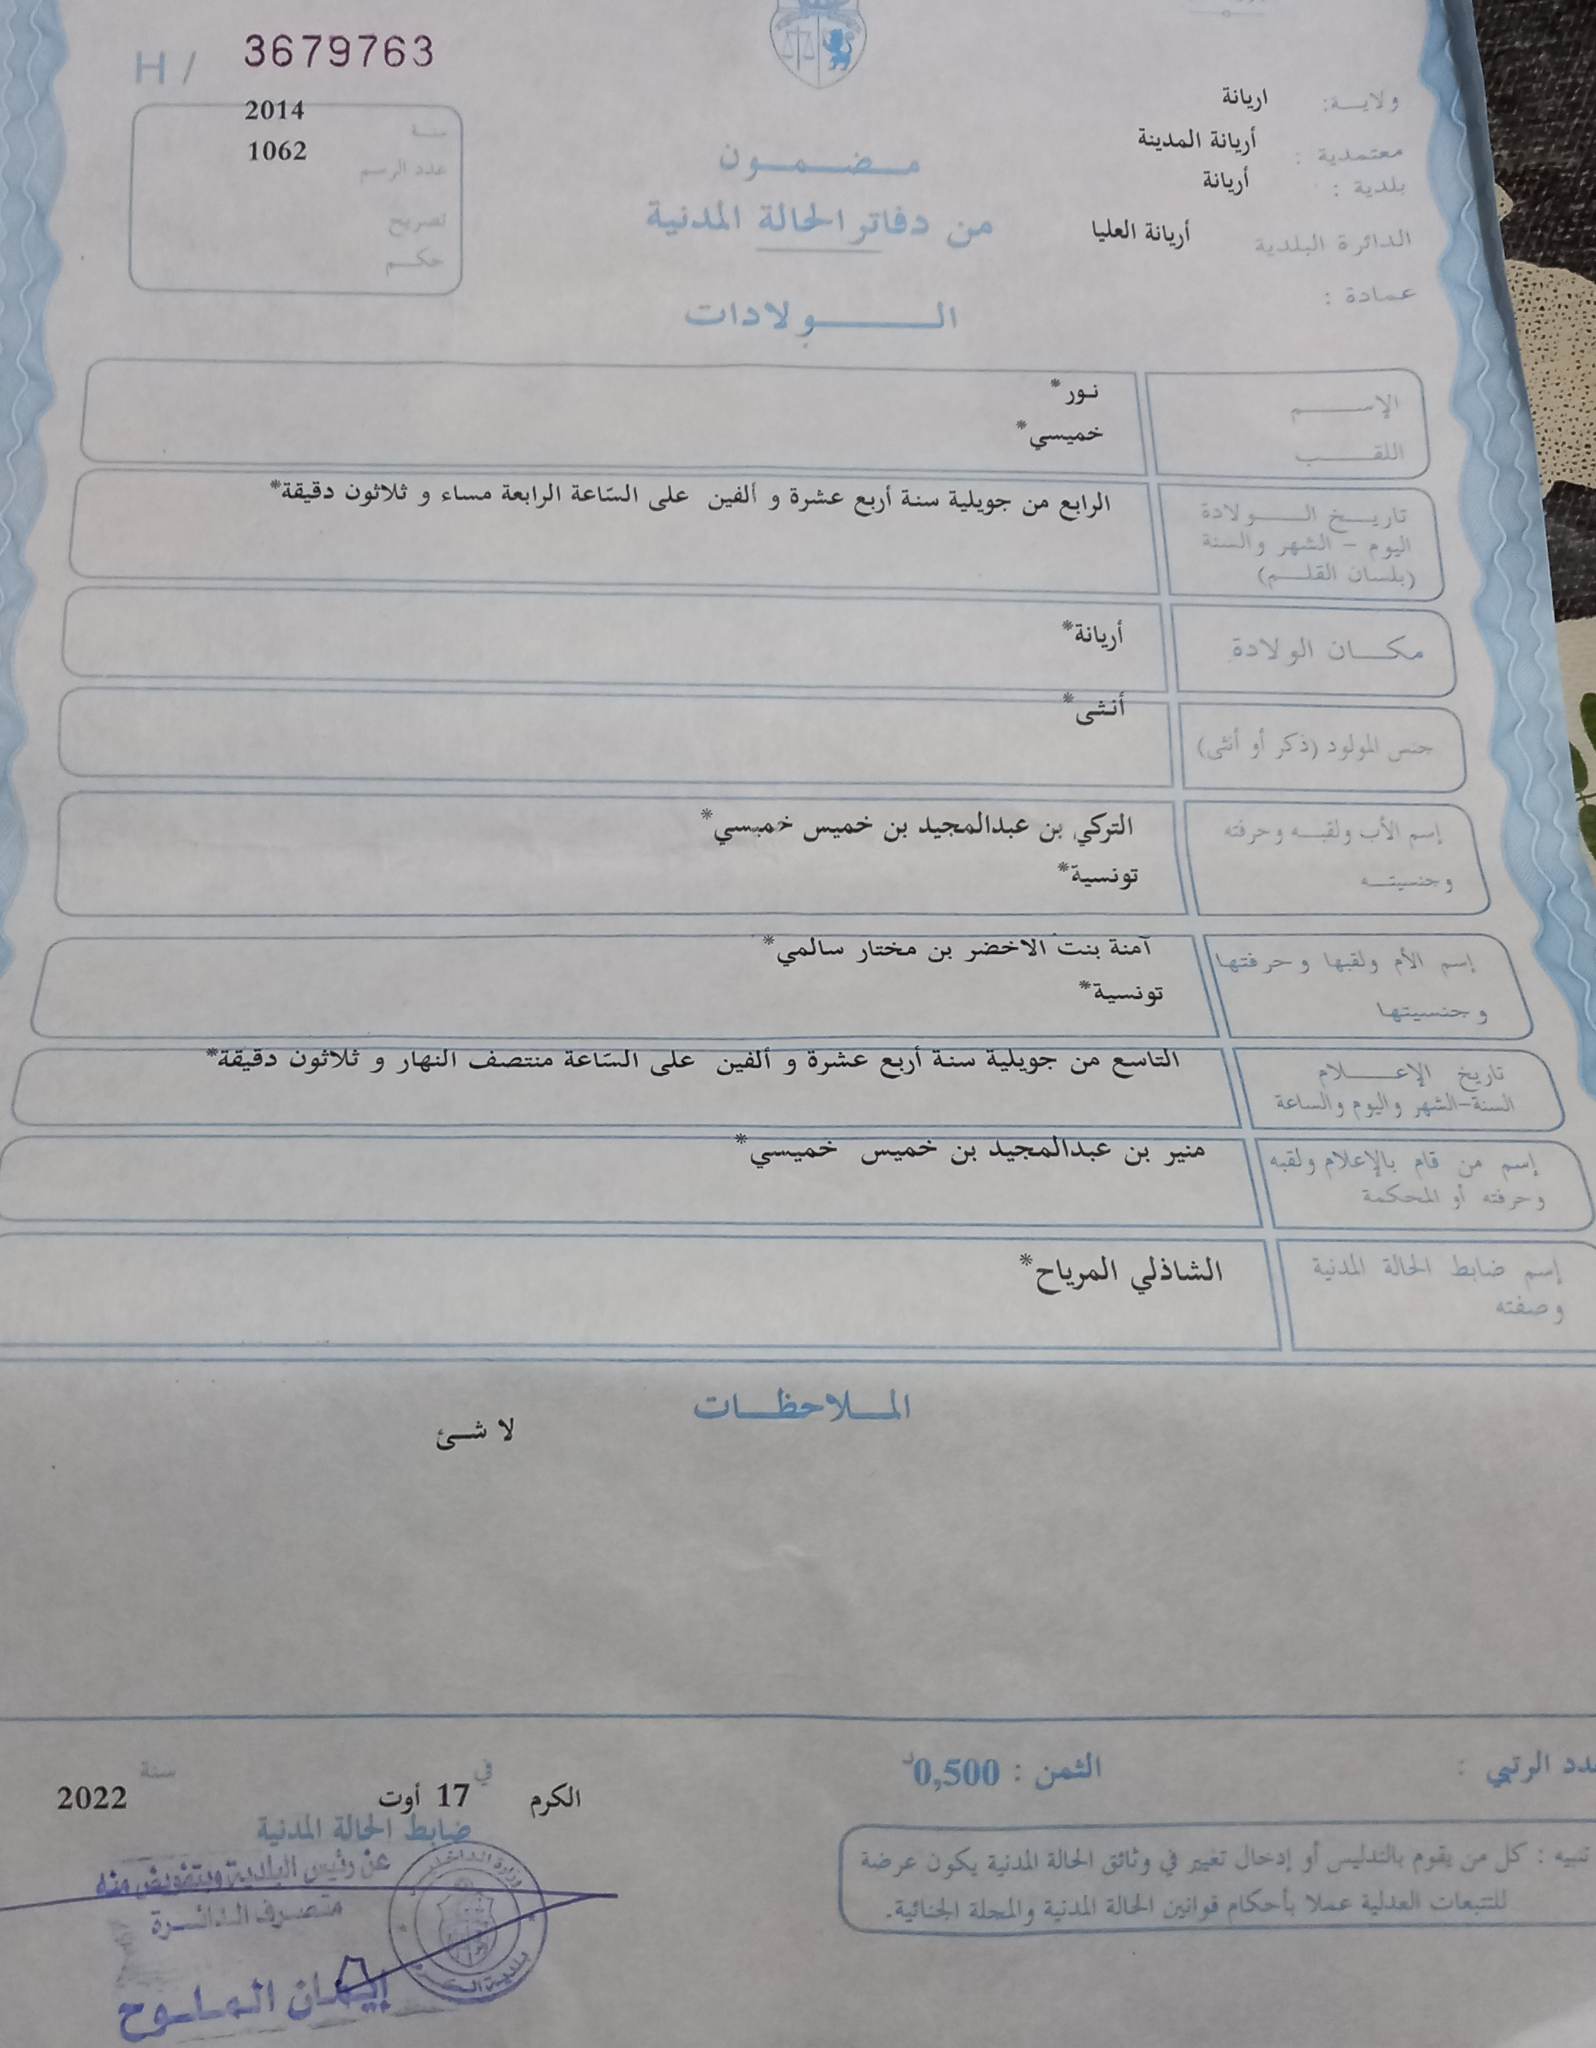 H / 3679763
ولايـــة: اريانة
معتمدية : أريانة المدينة
بلدية : أريانة
الدائرة البلدية أريانة العليا
عمادة :
سنـــة 2014
عدد الرسم 1062
تصريح
حكـــم
مـــضـــمـــون
من دفاتر الحالة المدنية
الـــــولادات
الإســـــم نـور*
اللقـــــب خميسي*
تاريـــخ الـــــولادة الرابع من جويلية سنة أربع عشرة و ألفين على السّاعة الرابعة مساء و ثلاثون دقيقة*
اليوم – الشهر والسنة
(بلسان القلـــم)
مكـــان الولادة أريانة*
جنس المولود (ذكر أو أنثى) أنـثـى*
إسم الأب ولقبـــه وحرفته التركي بن عبدالمجيد بن خميس خميسي*
وجنسيتـــه تونسية*
إسم الأم ولقبها وحرفتها آمنة بنت الاخضر بن مختار سالمي*
وجنسيتها تونسية*
تاريخ الإعـــــلام التاسع من جويلية سنة أربع عشرة و ألفين على السّاعة منتصف النهار و ثلاثون دقيقة*
السنة-الشهر واليوم والساعة
إسم من قام بالإعلام ولقبه منير بن عبدالمجيد بن خميس خميسي*
وحرفته أو المحكمة
إسم ضابط الحالة المدنية الشاذلي المرياح*
وصفته
المـــلاحظـــات
لا شـئ
عدد الرتبي :
الثمن : 0,500د
الكرم في 17 أوت سنة 2022
ضابط الحالة المدنية
عن رئيس البلدية وبتفويض منه
متصرف الدائـــرة
إيمـان المـلـوح
وزارة الداخلية
بلدية الكرم
تنبيه : كل من يقوم بالتدليس أو إدخال تغيير في وثائق الحالة المدنية يكون عرضة
للتتبعات العدلية عملا بأحكام قوانين الحالة المدنية والمجلة الجنائية.